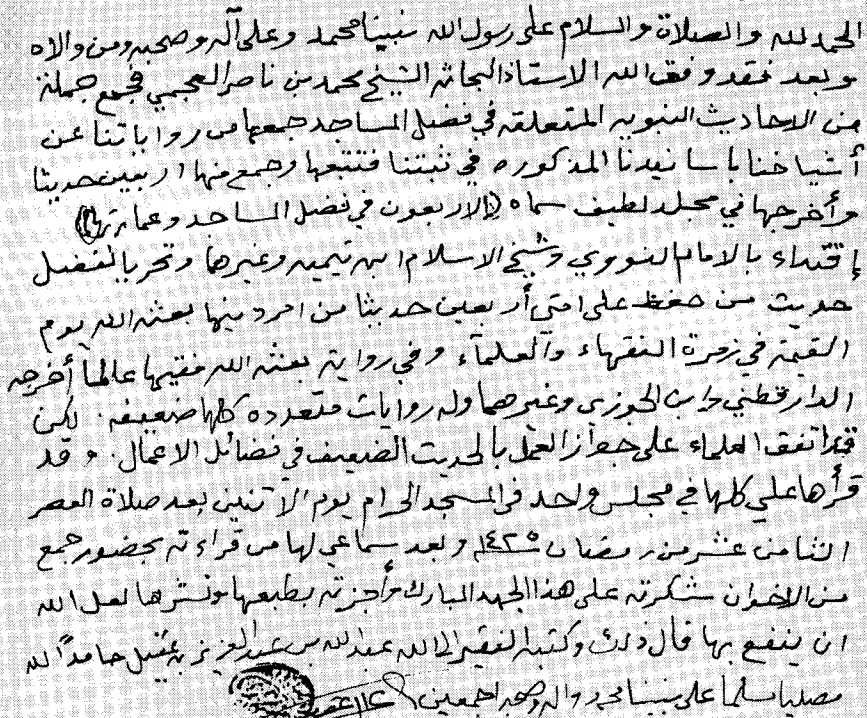 الحمد لله والصلاة والسلام على رسول الله نبينا محمد وعلى آله وصحبه ومن والاه
وبعد فقد وفق الله الاستاذ البحاثه الشيخ محمد بن ناصر العجمي فجمع جملة
من الاحاديث النبويه المتعلقه في فضل المساجد جمعها من رواياتنا عن
أشياخنا باسانيدنا المذكوره في ثبتنا فتتبعها وجمع منها اربعين حديثا
وأخرجها في مجلد لطيف سماه (الاربعون في فضل المساجد وعمارتها)
إقتداء بالامام النووي وشيخ الاسلام ابن تيميه وغيرها وتحريا لفضل
حديث من حفظ على امتي أربعين حديثا من امر دينها بعثه الله يوم
القيمة في زمرة الفقهاء والعلماء وفي رواية بعثه الله فقيها عالما أخرجه
الدارقطني وابن الجوزي وغيرهما وله روايات متعدده كلها ضعيفه لكن
قد اتفق العلماء على جواز العمل بالحديث الضعيف في فضائل الاعمال. وقد
قرأها علي كلها في مجلس واحد في المسجد الحرام يوم الاثنين بعد صلاة العصر
الثامن عشر من رمضان ١٤٢٥ وبعد سماعي لها من قراءته بحضور جمع
من الاخوان شكرته على هذا الجهد المبارك وأجزته بطبعها ونشرها لعل الله
ان ينفع بها قال ذلك وكتبه الفقير الى الله عبدالله بن عبدالعزيز بن عقيل حامدًا لله
مصليا مسلما على نبينا محمد واله وصحبه اجمعين